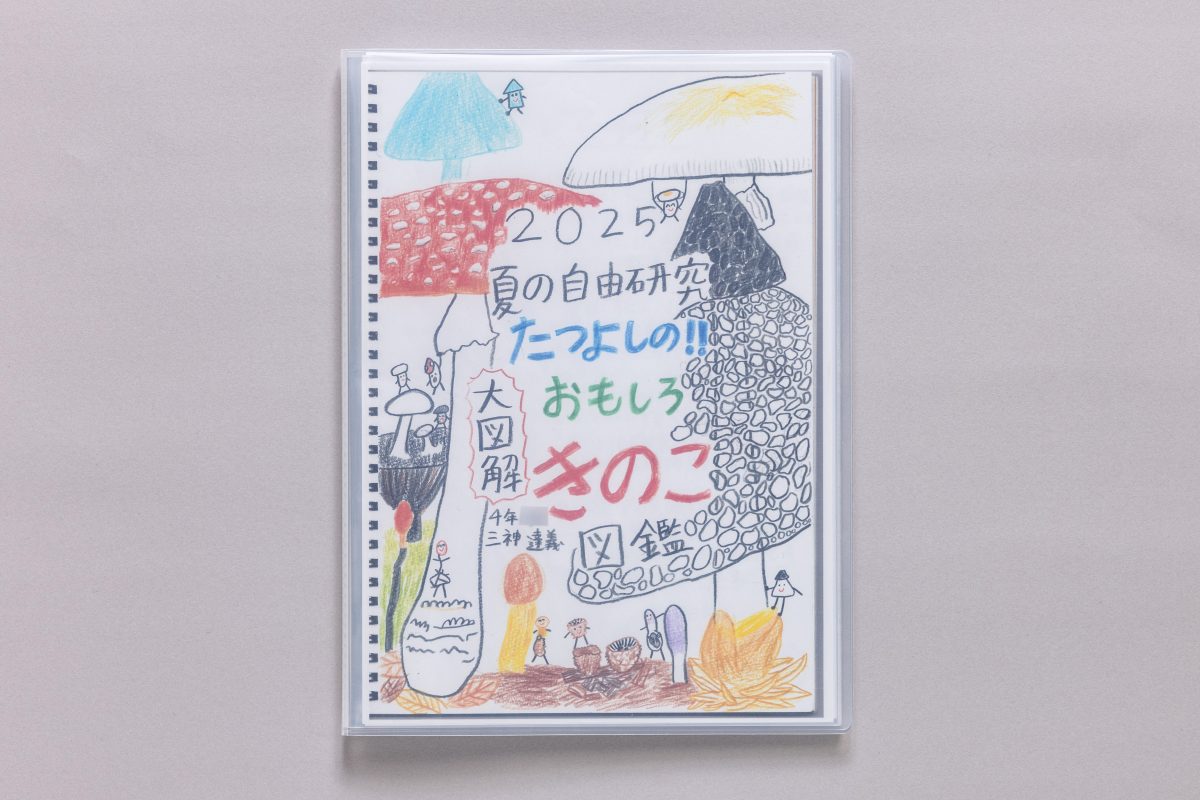 2025
夏の自由研究
たつよしの!!
おもしろ
大図解
きのこ
図鑑
4年
三神 達義